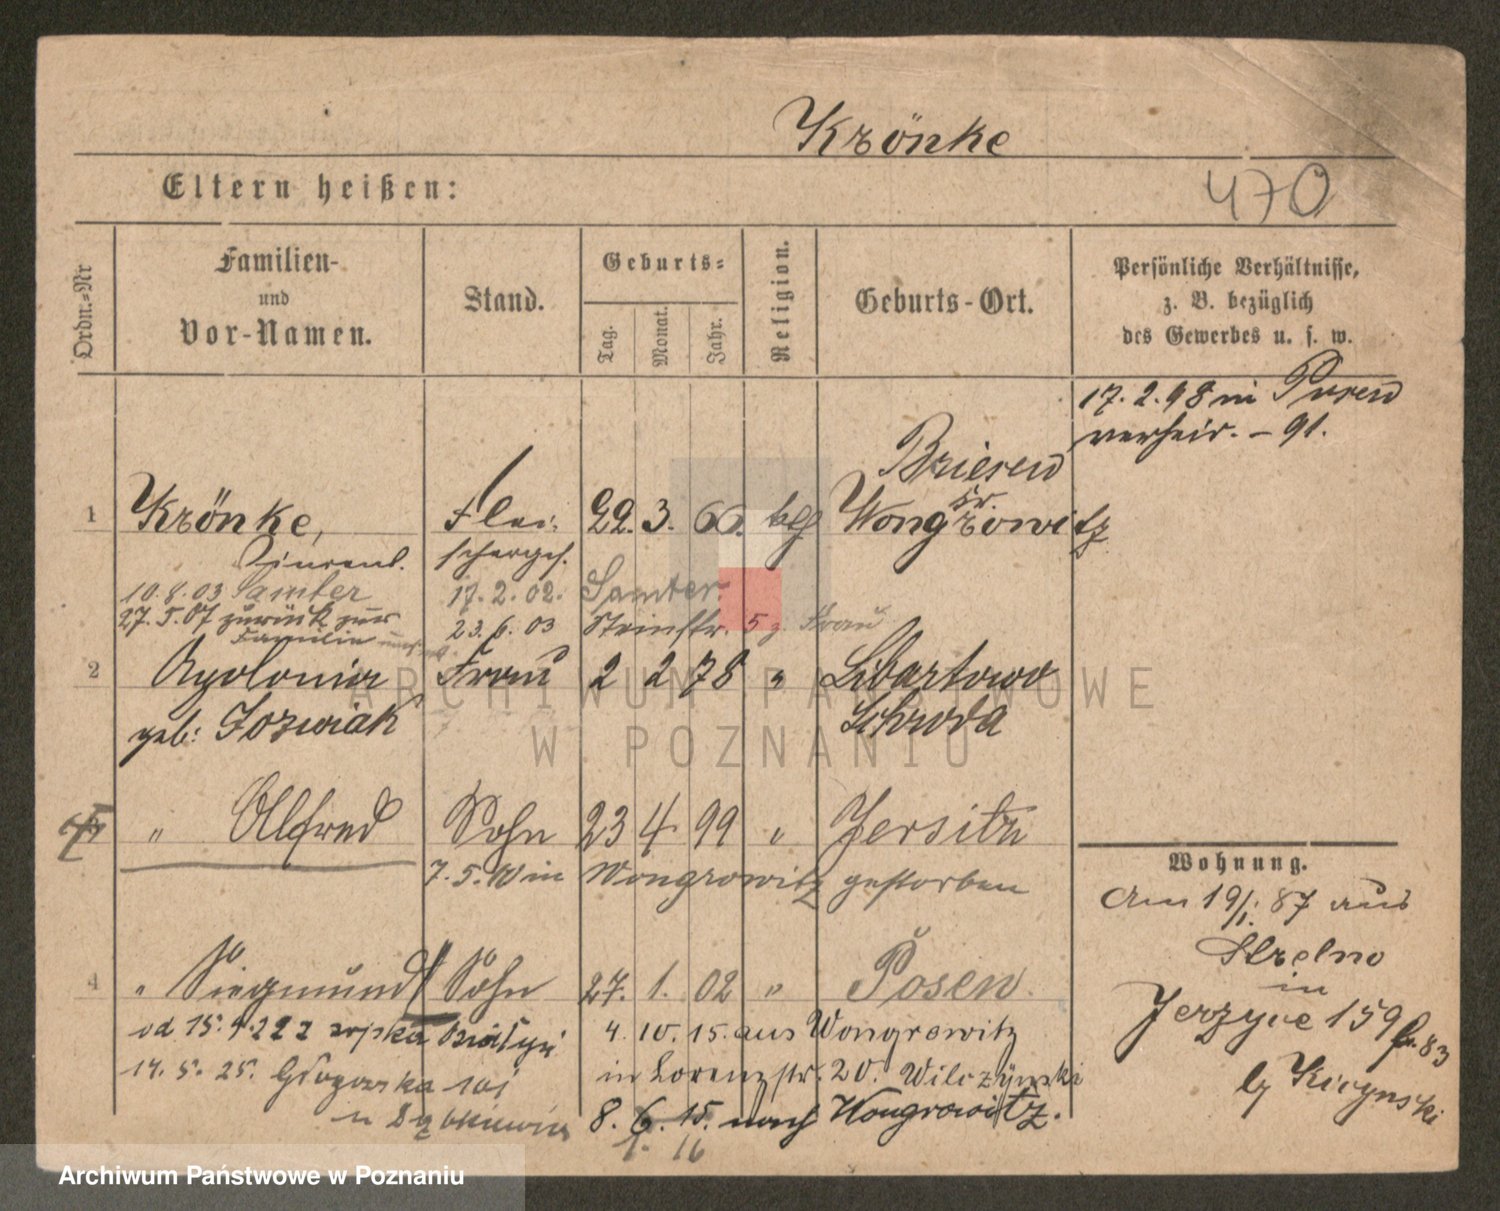 Krönke
470
Eltern heißen:
Ordn.=Nr
Familien-
und
Vor-Namen.
Stand.
Geburts=
Tag.
Monat.
Jahr.
Religion.
Geburts-Ort.
Persönliche Verhältnisse,
z. B. bezüglich
des Gewerbes u. s. w.
17. 2. 98 in Posen
verheir. – 91.
1 Krönke, Flei- 22. 3. 66. Briesen
scherges. Kr. Wongrowitz
10.8.03 Samter 17. 2. 02. Samter.
27. 5. 07 zurück zur 23. 6. 03 Steinstr. 5 z. Frau
Familie
2 Apolonia Frau 2 2 78 " Libartowo
geb: Jozwiak Schroda
" Alfred Sohn 23 4 99 " Jersitz
7. 5. in Wongrowitz gestorben
4 " Siegmund Sohn 27. 1. 02 " Posen
od 15. 9. 22
4. 10. 15. aus Wongrowitz
14. 5. 25. Głogowska 101
in Lorenzstr. 20. Wilczynski
8. 6. 15. nach Wongrowitz.
1. 16
Wohnung.
Am 19/1. 87 aus
Strelno
in
Jerzyce 159
ARCHIWUM PAŃSTWOWE
W POZNANIU
Archiwum Państwowe w Poznaniu